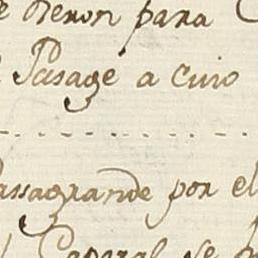 dieron para
Pasage a cuio
assagrande por el
Caporal se